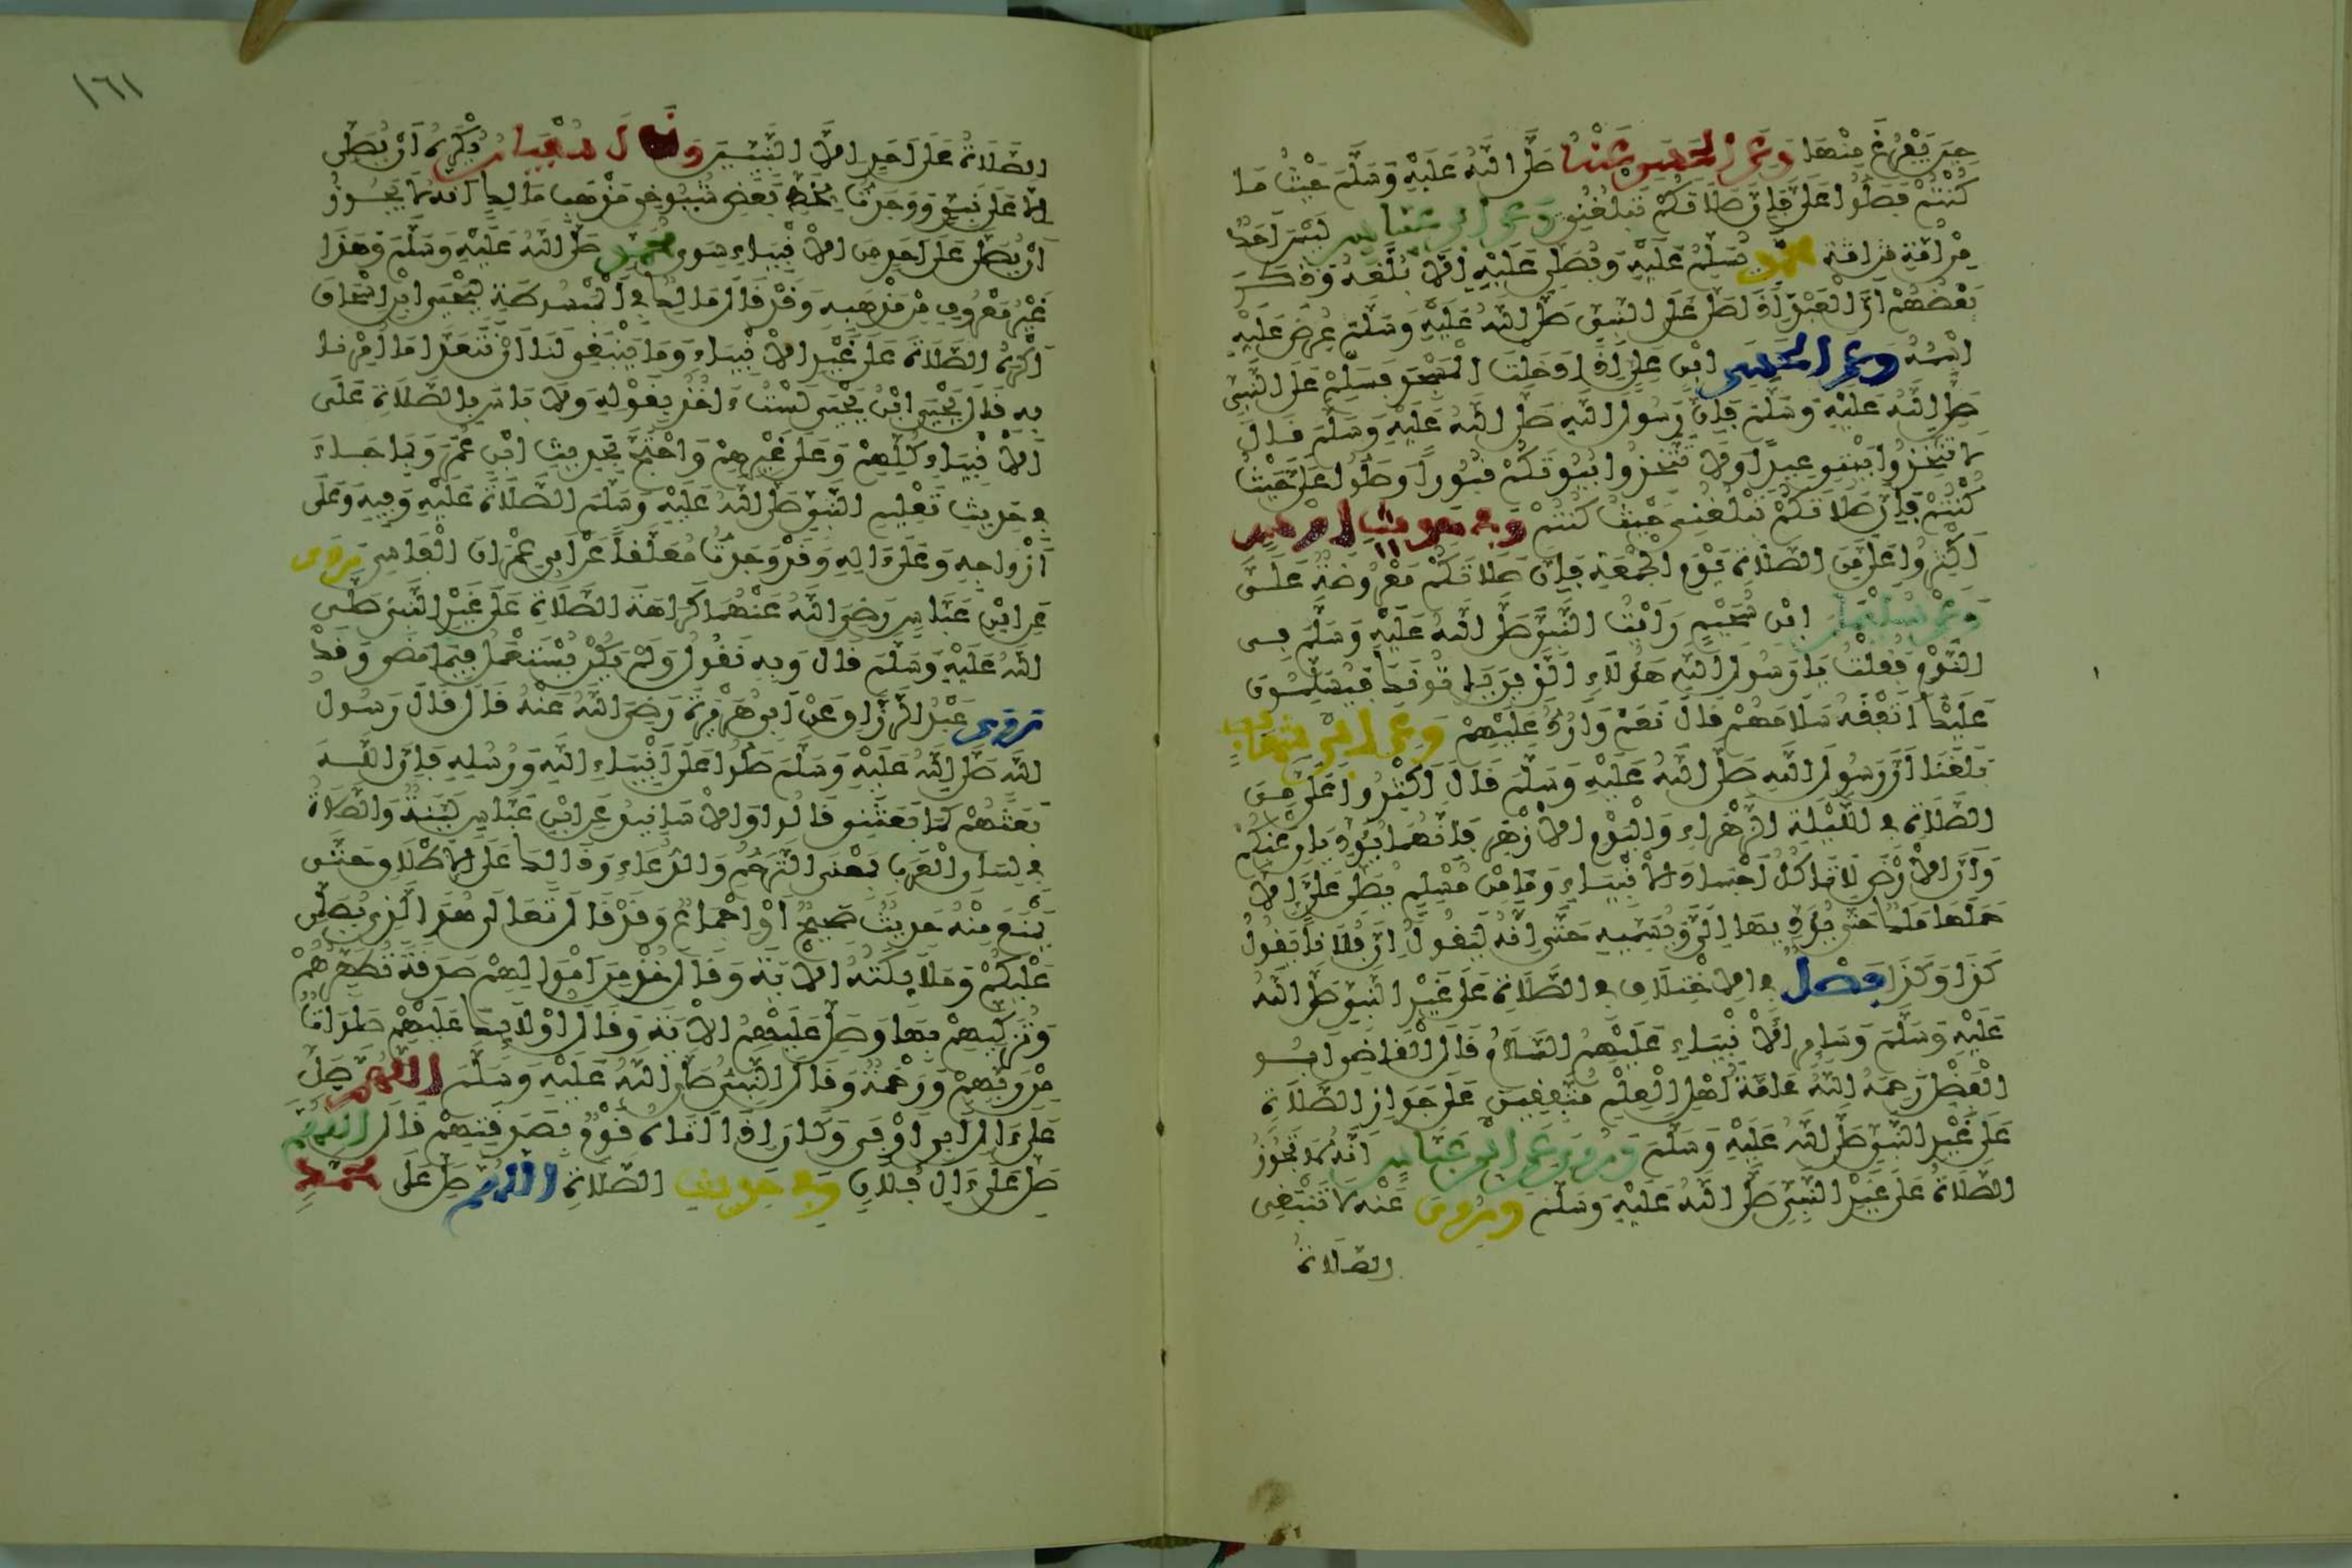 حِينَ يَفْرُغُ مِنْهَا وَعَنِ الْحَسَنِ عَنْهُ صَلَّى اللَّهُ عَلَيْهِ وَسَلَّمَ حَيْثُ مَا
كُنْتُمْ فَصَلُّوا عَلَيَّ فَإِنَّ صَلَاتَكُمْ تَبْلُغُنِي وَعَنِ ابْنِ عَبَّاسٍ لَيْسَ أَحَدٌ
مِنْ أُمَّةِ مُحَمَّدٍ يُسَلِّمُ عَلَيْهِ وَيُصَلِّي عَلَيْهِ إِلَّا بُلِّغَهُ وَذَكَرَ
بَعْضُهُمْ أَنَّ الْعَبْدَ إِذَا صَلَّى عَلَى النَّبِيِّ صَلَّى اللَّهُ عَلَيْهِ وَسَلَّمَ عُرِضَ عَلَيْهِ
اسْمُهُ وَعَنِ الْحَسَنِ ابْنِ عَلِيٍّ إِذَا دَخَلْتَ الْمَسْجِدَ فَسَلِّمْ عَلَى النَّبِيِّ
صَلَّى اللَّهُ عَلَيْهِ وَسَلَّمَ فَإِنَّ رَسُولَ اللَّهِ صَلَّى اللَّهُ عَلَيْهِ وَسَلَّمَ قَالَ
لَا تَتَّخِذُوا بَيْتِي عِيدًا وَلَا تَتَّخِذُوا بُيُوتَكُمْ قُبُورًا وَصَلُّوا عَلَيَّ حَيْثُ
كُنْتُمْ فَإِنَّ صَلَاتَكُمْ تَبْلُغُنِي حَيْثُ كُنْتُمْ وَفِي حَدِيثِ أَوْسٍ
أَكْثِرُوا عَلَيَّ مِنَ الصَّلَاةِ يَوْمَ الْجُمُعَةِ فَإِنَّ صَلَاتَكُمْ مَعْرُوضَةٌ عَلَيَّ
وَعَنْ سُلَيْمَانَ ابْنِ سُحَيْمٍ رَأَيْتُ النَّبِيَّ صَلَّى اللَّهُ عَلَيْهِ وَسَلَّمَ فِي
النَّوْمِ فَقُلْتُ يَا رَسُولَ اللَّهِ هَؤُلَاءِ الَّذِينَ يَأْتُونَكَ فَيُسَلِّمُونَ
عَلَيْكَ أَتَفْقَهُ سَلَامَهُمْ قَالَ نَعَمْ وَأَرُدُّ عَلَيْهِمْ وَعَنِ ابْنِ شِهَابٍ
بَلَغَنَا أَنَّ رَسُولَ اللَّهِ صَلَّى اللَّهُ عَلَيْهِ وَسَلَّمَ قَالَ أَكْثِرُوا عَلَيَّ مِنَ
الصَّلَاةِ فِي اللَّيْلَةِ الزَّهْرَاءِ وَالْيَوْمِ الْأَزْهَرِ فَإِنَّهُمَا يُؤَدِّيَانِ عَنْكُمْ
وَأَنَّ الْأَرْضَ لَا تَأْكُلُ أَجْسَادَ الْأَنْبِيَاءِ وَمَا مِنْ مُسْلِمٍ يُصَلِّي عَلَيَّ إِلَّا
حَمَلَهَا مَلَكٌ حَتَّى يُؤَدِّيَهَا إِلَيَّ وَيُسَمِّيهِ حَتَّى إِنَّهُ لَيَقُولُ إِنَّ فُلَانًا يَقُولُ
كَذَا وَكَذَا فَصْلٌ فِي الِاخْتِلَافِ فِي الصَّلَاةِ عَلَى غَيْرِ النَّبِيِّ صَلَّى اللَّهُ
عَلَيْهِ وَسَلَّمَ وَسَائِرِ الْأَنْبِيَاءِ عَلَيْهِمُ السَّلَامُ قَالَ الْقَاضِي أَبُو
الْفَضْلِ رَحِمَهُ اللَّهُ عَامَّةُ أَهْلِ الْعِلْمِ مُتَّفِقِينَ عَلَى جَوَازِ الصَّلَاةِ
عَلَى غَيْرِ النَّبِيِّ صَلَّى اللَّهُ عَلَيْهِ وَسَلَّمَ وَرُوِيَ عَنِ ابْنِ عَبَّاسٍ أَنَّهُ لَا تَجُوزُ
الصَّلَاةُ عَلَى غَيْرِ النَّبِيِّ صَلَّى اللَّهُ عَلَيْهِ وَسَلَّمَ وَرُوِيَ عَنْهُ لَا تَنْبَغِي
الصَّلَاةُ
١٦١
الصَّلَاةُ عَلَى أَحَدٍ إِلَّا النَّبِيِّينَ وَقَالَ سُفْيَانُ يُكْرَهُ أَنْ يُصَلَّى
إِلَّا عَلَى نَبِيٍّ وَوَجَدْتُ بِخَطِّ بَعْضِ شُيُوخِي مَذْهَبُ مَالِكٍ أَنَّهُ لَا يَجُوزُ
أَنْ يُصَلَّى عَلَى أَحَدٍ مِنَ الْأَنْبِيَاءِ سِوَى مُحَمَّدٍ صَلَّى اللَّهُ عَلَيْهِ وَسَلَّمَ وَهَذَا
غَيْرُ مَعْرُوفٍ مِنْ مَذْهَبِهِ وَقَدْ قَالَ مَالِكٌ فِي الْمَبْسُوطَةِ لِيَحْيَى ابْنِ إِسْحَاقَ
أَكْرَهُ الصَّلَاةَ عَلَى غَيْرِ الْأَنْبِيَاءِ وَمَا يَنْبَغِي لَنَا أَنْ نَتَعَدَّى مَا أُمِرْنَا
بِهِ قَالَ يَحْيَى ابْنُ يَحْيَى لَسْتُ ءَاخُذُ بِقَوْلِهِ وَلَا بَأْسَ بِالصَّلَاةِ عَلَى
الْأَنْبِيَاءِ كُلِّهِمْ وَعَلَى غَيْرِهِمْ وَاحْتَجَّ بِحَدِيثِ ابْنِ عُمَرَ وَبِمَا جَاءَ
فِي حَدِيثِ تَعْلِيمِ النَّبِيِّ صَلَّى اللَّهُ عَلَيْهِ وَسَلَّمَ الصَّلَاةَ عَلَيْهِ وَفِيهِ وَعَلَى
أَزْوَاجِهِ وَعَلَى ءَالِهِ وَقَدْ وَجَدْتُ مُعَلَّقًا عَنْ أَبِي عِمْرَانَ الْفَاسِي رَوَى
عَنِ ابْنِ عَبَّاسٍ رَضِيَ اللَّهُ عَنْهُمَا كَرَاهَةَ الصَّلَاةِ عَلَى غَيْرِ النَّبِيِّ صَلَّى
اللَّهُ عَلَيْهِ وَسَلَّمَ قَالَ وَبِهِ نَقُولُ وَلَمْ يَكُنْ يُسْتَعْمَلُ فِيمَا مَضَى وَقَدْ
رَوَى عَبْدُ الرَّزَّاقِ عَنْ أَبِي هُرَيْرَةَ رَضِيَ اللَّهُ عَنْهُ قَالَ قَالَ رَسُولُ
اللَّهِ صَلَّى اللَّهُ عَلَيْهِ وَسَلَّمَ صَلُّوا عَلَى أَنْبِيَاءِ اللَّهِ وَرُسُلِهِ فَإِنَّ اللَّهَ
بَعَثَهُمْ كَمَا بَعَثَنِي قَالُوا وَالْأَسَانِيدُ عَنِ ابْنِ عَبَّاسٍ لَيِّنَةٌ وَالصَّلَاةُ
فِي لِسَانِ الْعَرَبِ بِمَعْنَى التَّرَحُّمِ وَالدُّعَاءِ وَذَلِكَ عَلَى الْإِطْلَاقِ حَتَّى
يَمْنَعَ مِنْهُ حَدِيثٌ صَحِيحٌ أَوْ إِجْمَاعٌ وَقَدْ قَالَ تَعَالَى هُوَ الَّذِي يُصَلِّي
عَلَيْكُمْ وَمَلَائِكَتُهُ الْآيَةَ وَقَالَ خُذْ مِنْ أَمْوَالِهِمْ صَدَقَةً تُطَهِّرُهُمْ
وَتُزَكِّيهِمْ بِهَا وَصَلِّ عَلَيْهِمُ الْآيَةَ وَقَالَ أُولَئِكَ عَلَيْهِمْ صَلَوَاتٌ
مِنْ رَبِّهِمْ وَرَحْمَةٌ وَقَالَ النَّبِيُّ صَلَّى اللَّهُ عَلَيْهِ وَسَلَّمَ اللَّهُمَّ صَلِّ
عَلَى ءَالِ أَبِي أَوْفَى وَكَانَ إِذَا أَتَاهُ قَوْمٌ بِصَدَقَتِهِمْ قَالَ اللَّهُمَّ
صَلِّ عَلَى ءَالِ فُلَانٍ وَفِي حَدِيثِ الصَّلَاةِ اللَّهُمَّ صَلِّ عَلَى مُحَمَّدٍ